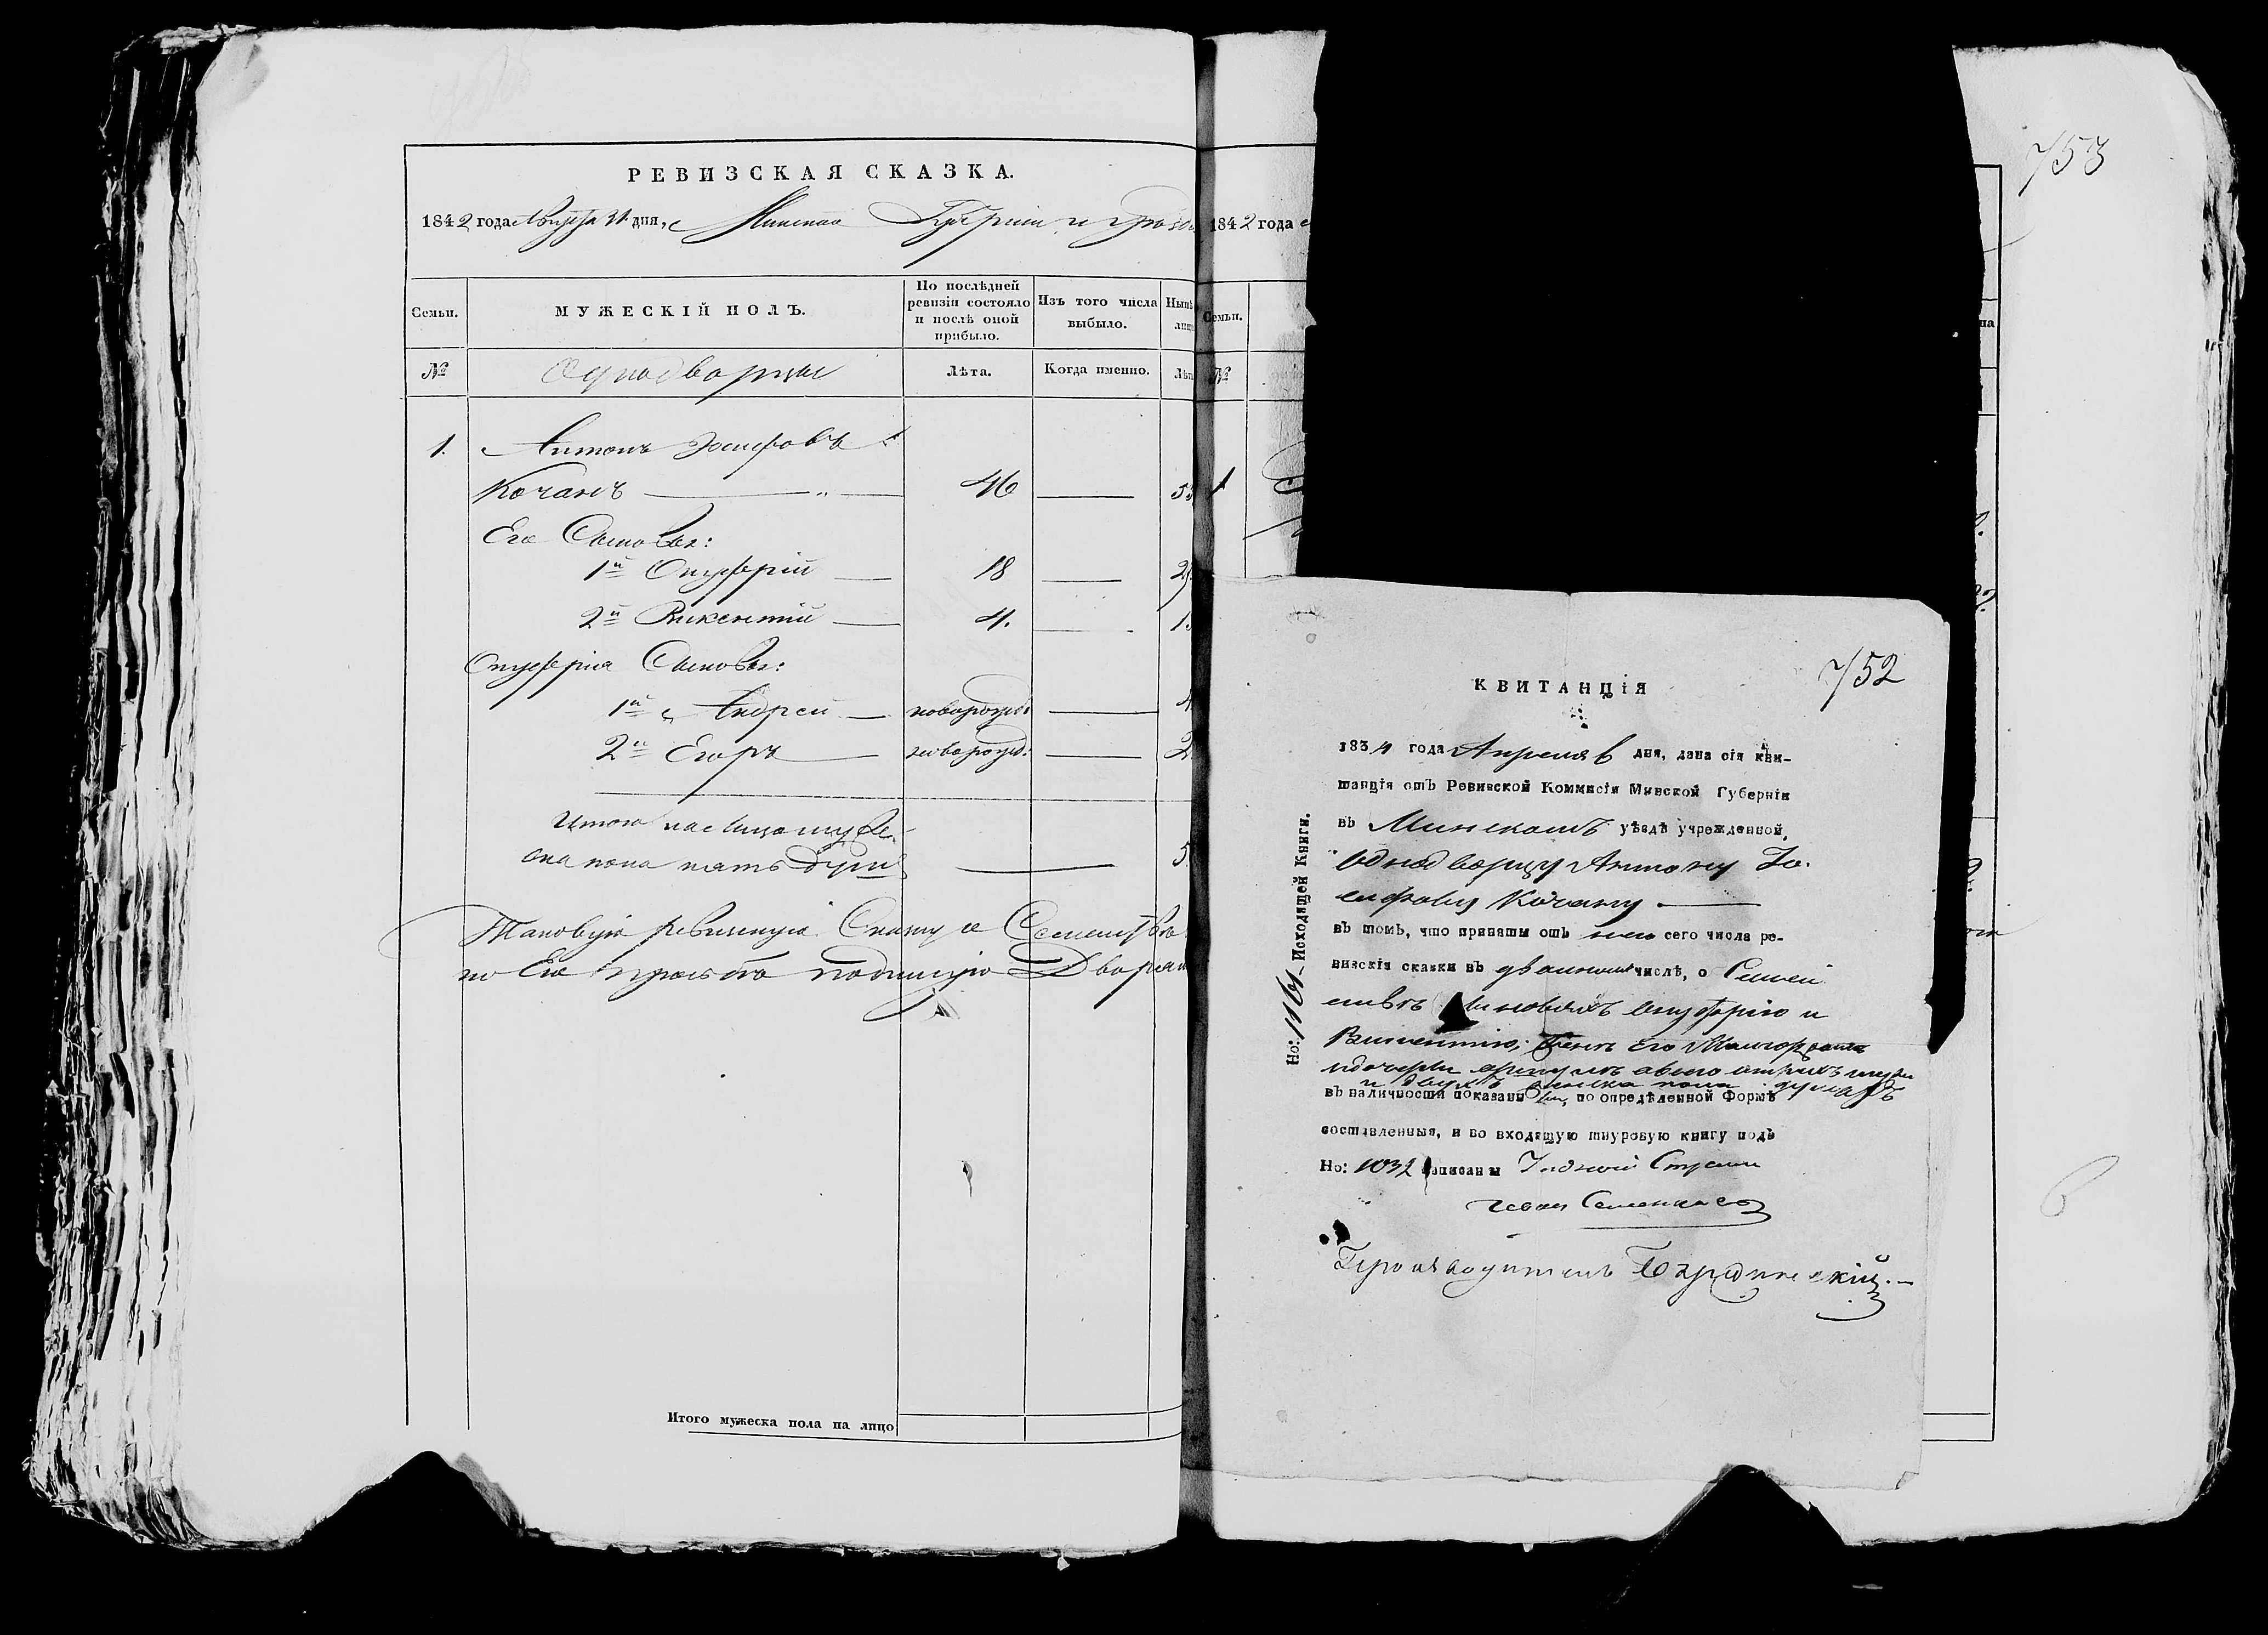 РЕВИЗСКАЯ СКАЗКА.
1842 года Августа 21 дня, Минской Губерніи и уѣзда
Семьи.
МУЖЕСКІЙ ПОЛЪ.
По послѣдней ревизіи состояло и послѣ оной прибыло.
Изъ того числа выбыло.
№
Однодворцы
Лѣта.
Когда именно.
1. Антонъ Іосифовъ
Кочанъ 46
Его Сыновья:
1й Онуфрій 18
2й Викентій 4.
Онуфрія Сыновья:
1й Андрей новорожд:
2й Егоръ новорожд:
Итого на лицо муже-
ска пола пять душъ 5
Таковую ревизскую Сказку о Семействѣ
по Его прозьбѣ подписую
Итого мужеска пола на лицо
1842 года
Семьи.
№
1
753
752
КВИТАНЦІЯ
1834 года Апреля 6 дня, дана сія кви-
танція отъ Ревизской Коммисіи Минской Губерніи
въ Минскомъ уѣздѣ учрежденной,
однодворцу Антону Іо-
сифову Кочану
въ томъ, что приняты отъ него сего числа ре-
визскія сказки въ двойномъ числѣ, о Семей
ствѣ сыновьяхъ Онуфрію и
Викентію, Женѣ Его Маргоржатѣ
и дочери
и двухъ женска пола душахъ
въ наличности показаны, по опредѣленной Формѣ
составленныя, и во входящую шнуровую книгу подъ
Но: 1032 записаны
Иван
Производитель
Но: 1161 Исходящей Книги.